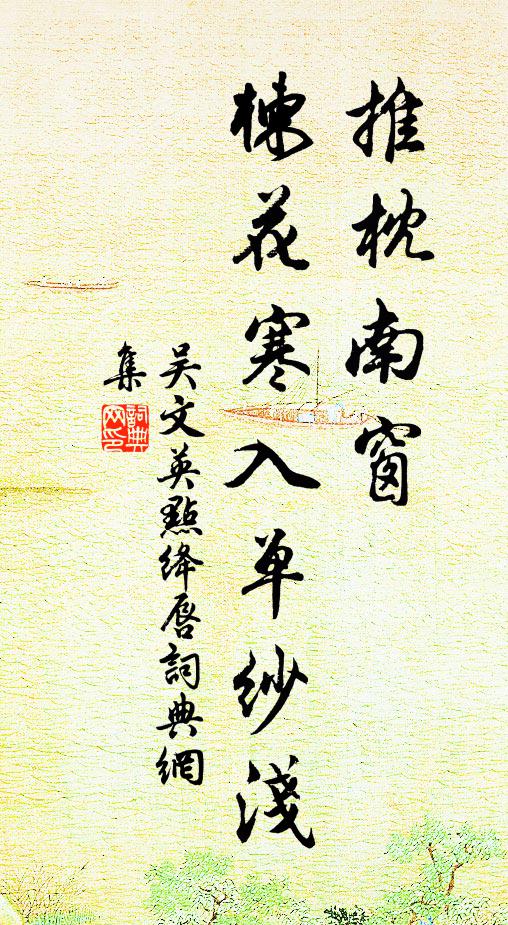 推枕南窗
楝花寒入单纱淺
吴文英點绛唇詞典網
集
詞典网印